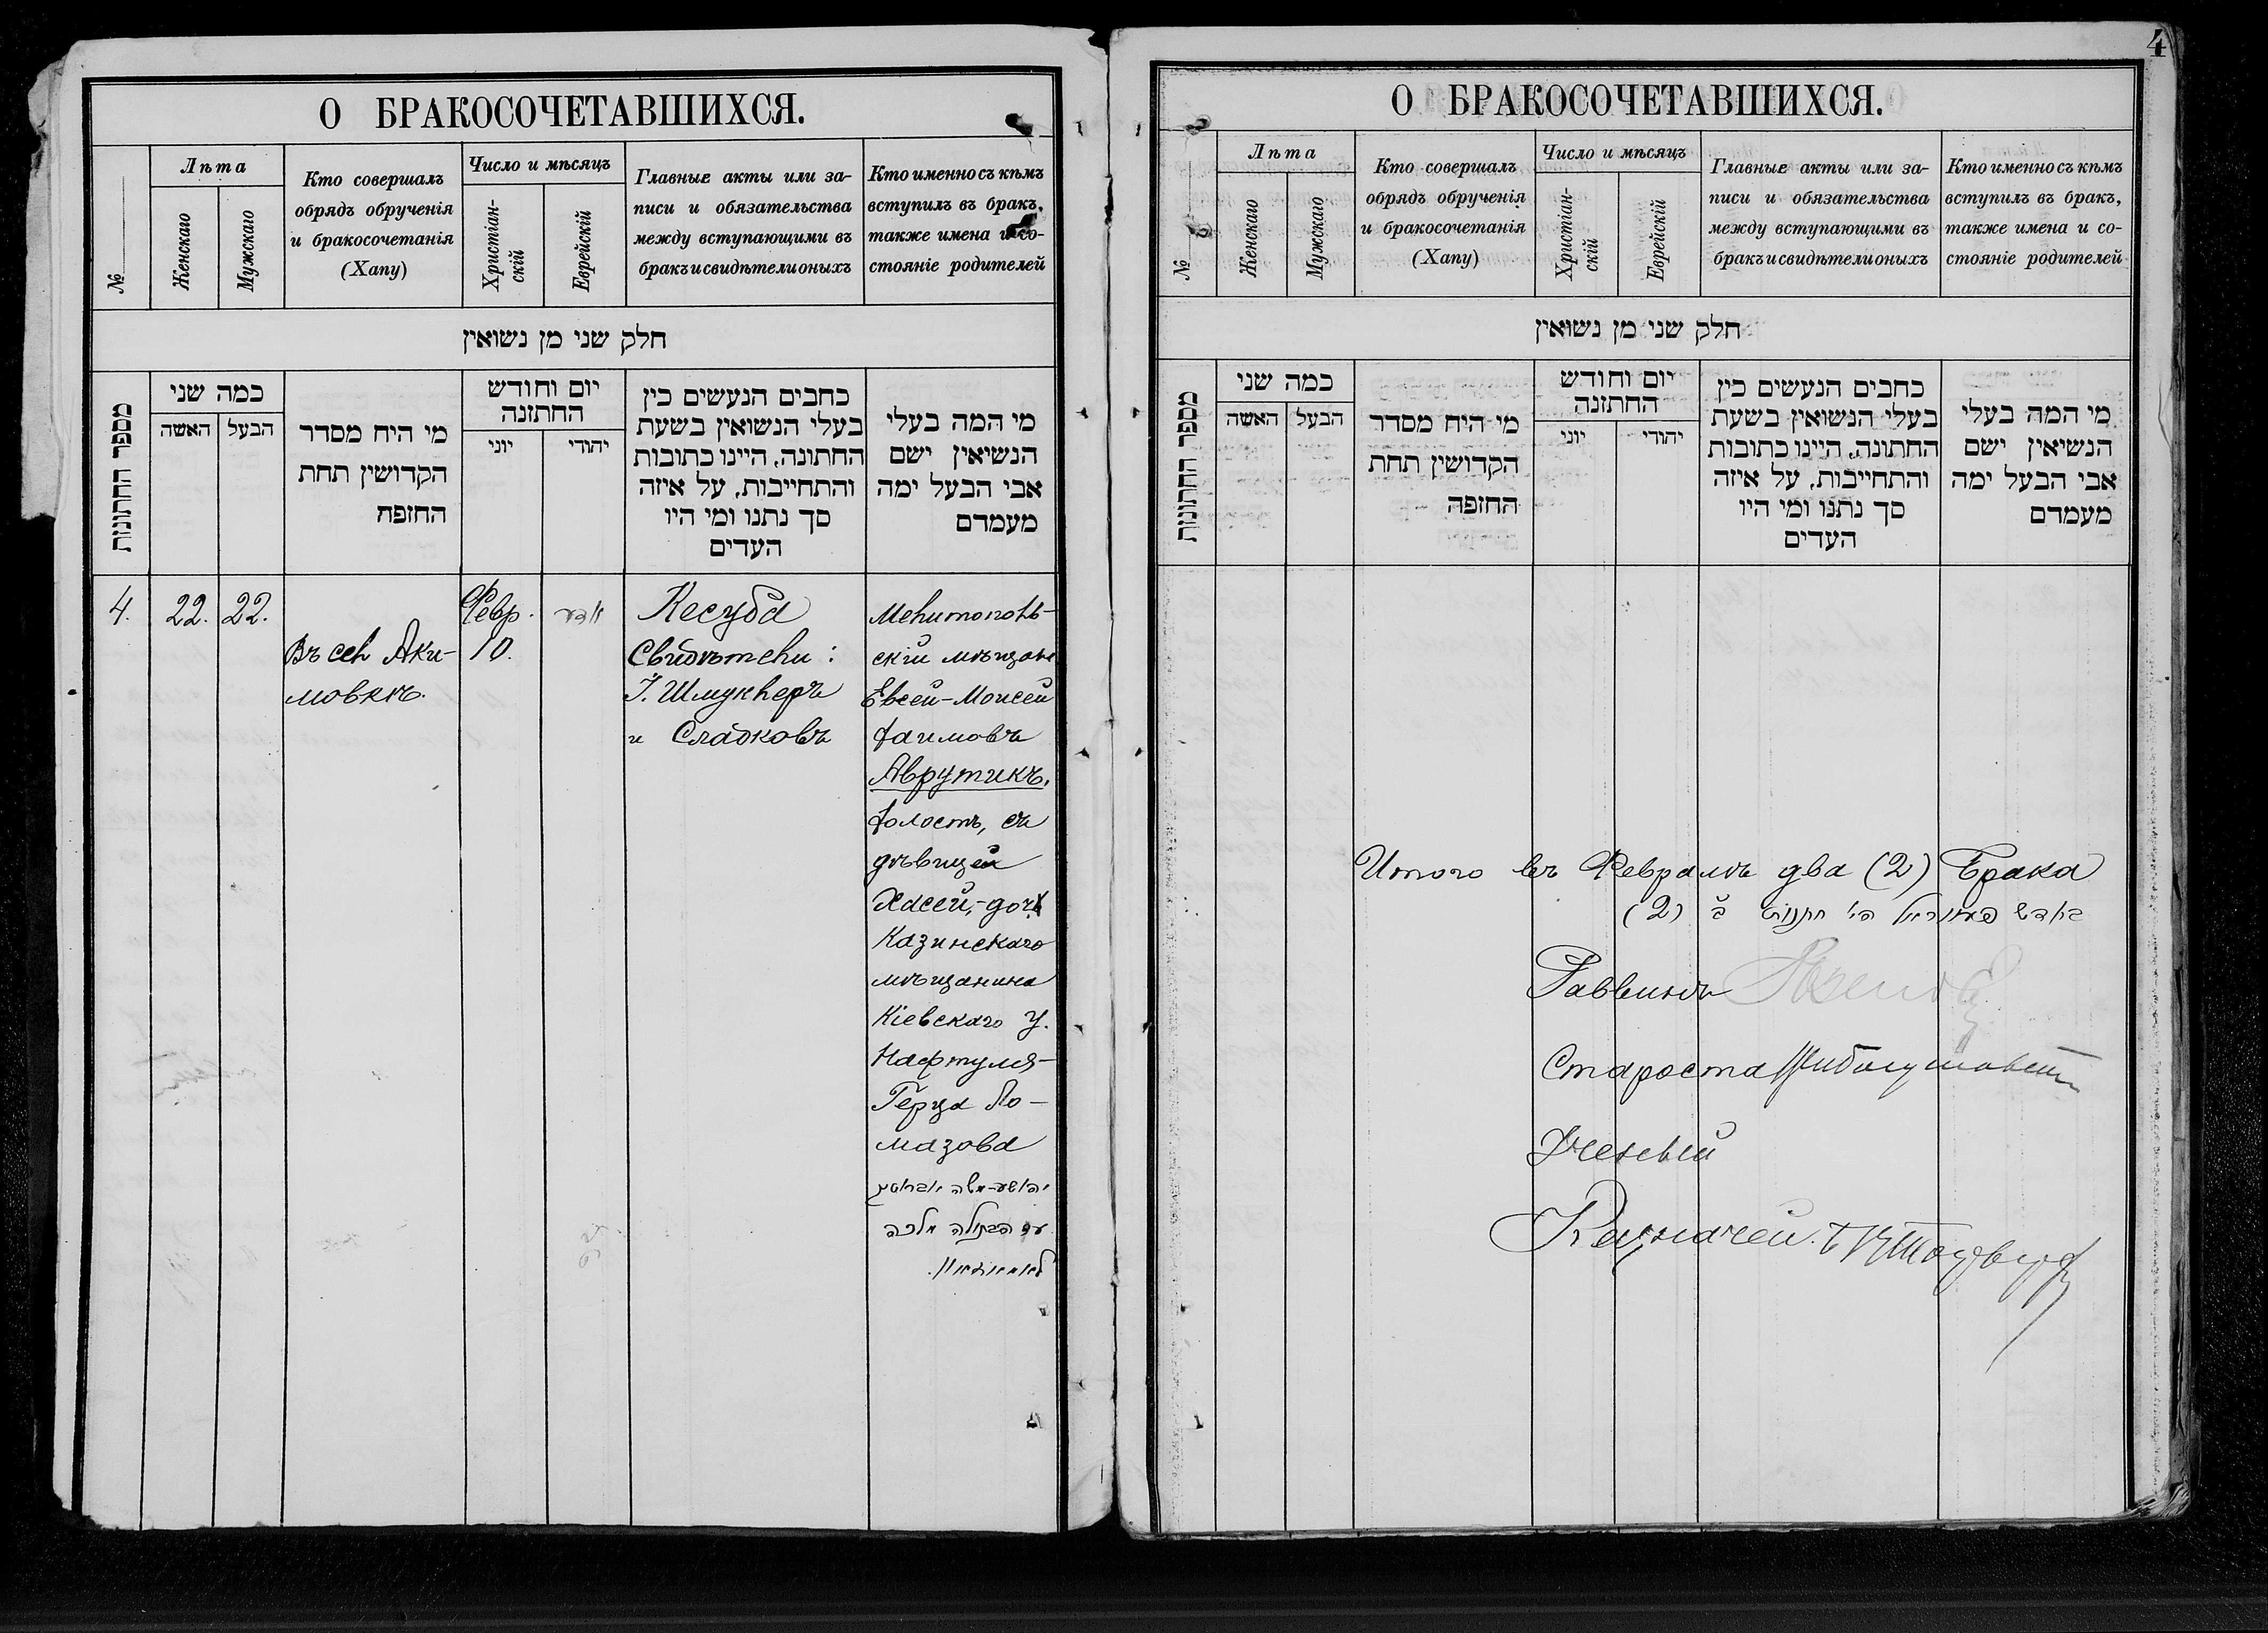 О БРАКОСОЧЕТАВШИХСЯ.
№
Лѣта
Женскаго
Мужскаго
Кто совершалъ
обрядъ обрученія
и бракосочетанія
(Хапу)
Число и мѣсяцъ
Христіан-
скій
Еврейскій
Главные акты или за-
писи и обязательства
между вступающими въ
бракъ и свидѣтели оныхъ
Кто именно съ кѣмъ
вступилъ въ бракъ,
также имена и со-
стояніе родителей
חלק שני מן נשואין
מספר החתונות
כמה שני
האשה
הבעל
מי היח מסדר
הקדושין תחת
החופה
יום וחודש
החתונה
יוני
יהודי
כחבים הנעשים כין
בעלי הנשואין בשעת
החתונה, היינו כתובות
והתחייבות, על איזה
סך נתנו ומי היו
העדים
מי המה בעלי
הנשיאין ישם
אבי הבעל ימה
מעמדם
4.
22.
22.
Въ сел Аки-
мовкѣ.
Февр.
10.
אדר
Кесуба
Свидѣтели:
І. Шмуклеръ
и Сладковъ
Мелитополь-
скій мѣщан
Евсей-Моисей
Хаимовъ
Аврутикъ,
холостъ, съ
дѣвицей
Хасей, - дочь
Казинскаго
мѣщанина
Кіевскаго у.
Нафтуля-
Герца Ло-
мазова
עם הבתולה
4
О БРАКОСОЧЕТАВШИХСЯ.
№
Лѣта
Женскаго
Мужскаго
Кто совершалъ
обрядъ обрученія
и бракосочетанія
(Хапу)
Число и мѣсяцъ
Христіан-
скій
Еврейскій
Главные акты или за-
писи и обязательства
между вступающими въ
бракъ и свидѣтели оныхъ
Кто именно съ кѣмъ
вступилъ въ бракъ,
также имена и со-
стояніе родителей
חלק שני מן נשואין
מספר החתונות
כמה שני
האשה
הבעל
מי היח מסדר
הקדושין תחת
החופה
יום וחודש
החתונה
יוני
יהודי
כחבים הנעשים כין
בעלי הנשואין בשעת
החתונה, היינו כתובות
והתחייבות, על איזה
סך נתנו ומי היו
העדים
מי המה בעלי
הנשיאין ישם
אבי הבעל ימה
מעמדם
Итого въ Февралѣ два (2) Брака
חתונות ב (2)
Раввинъ
Староста
Ученый
Казначей